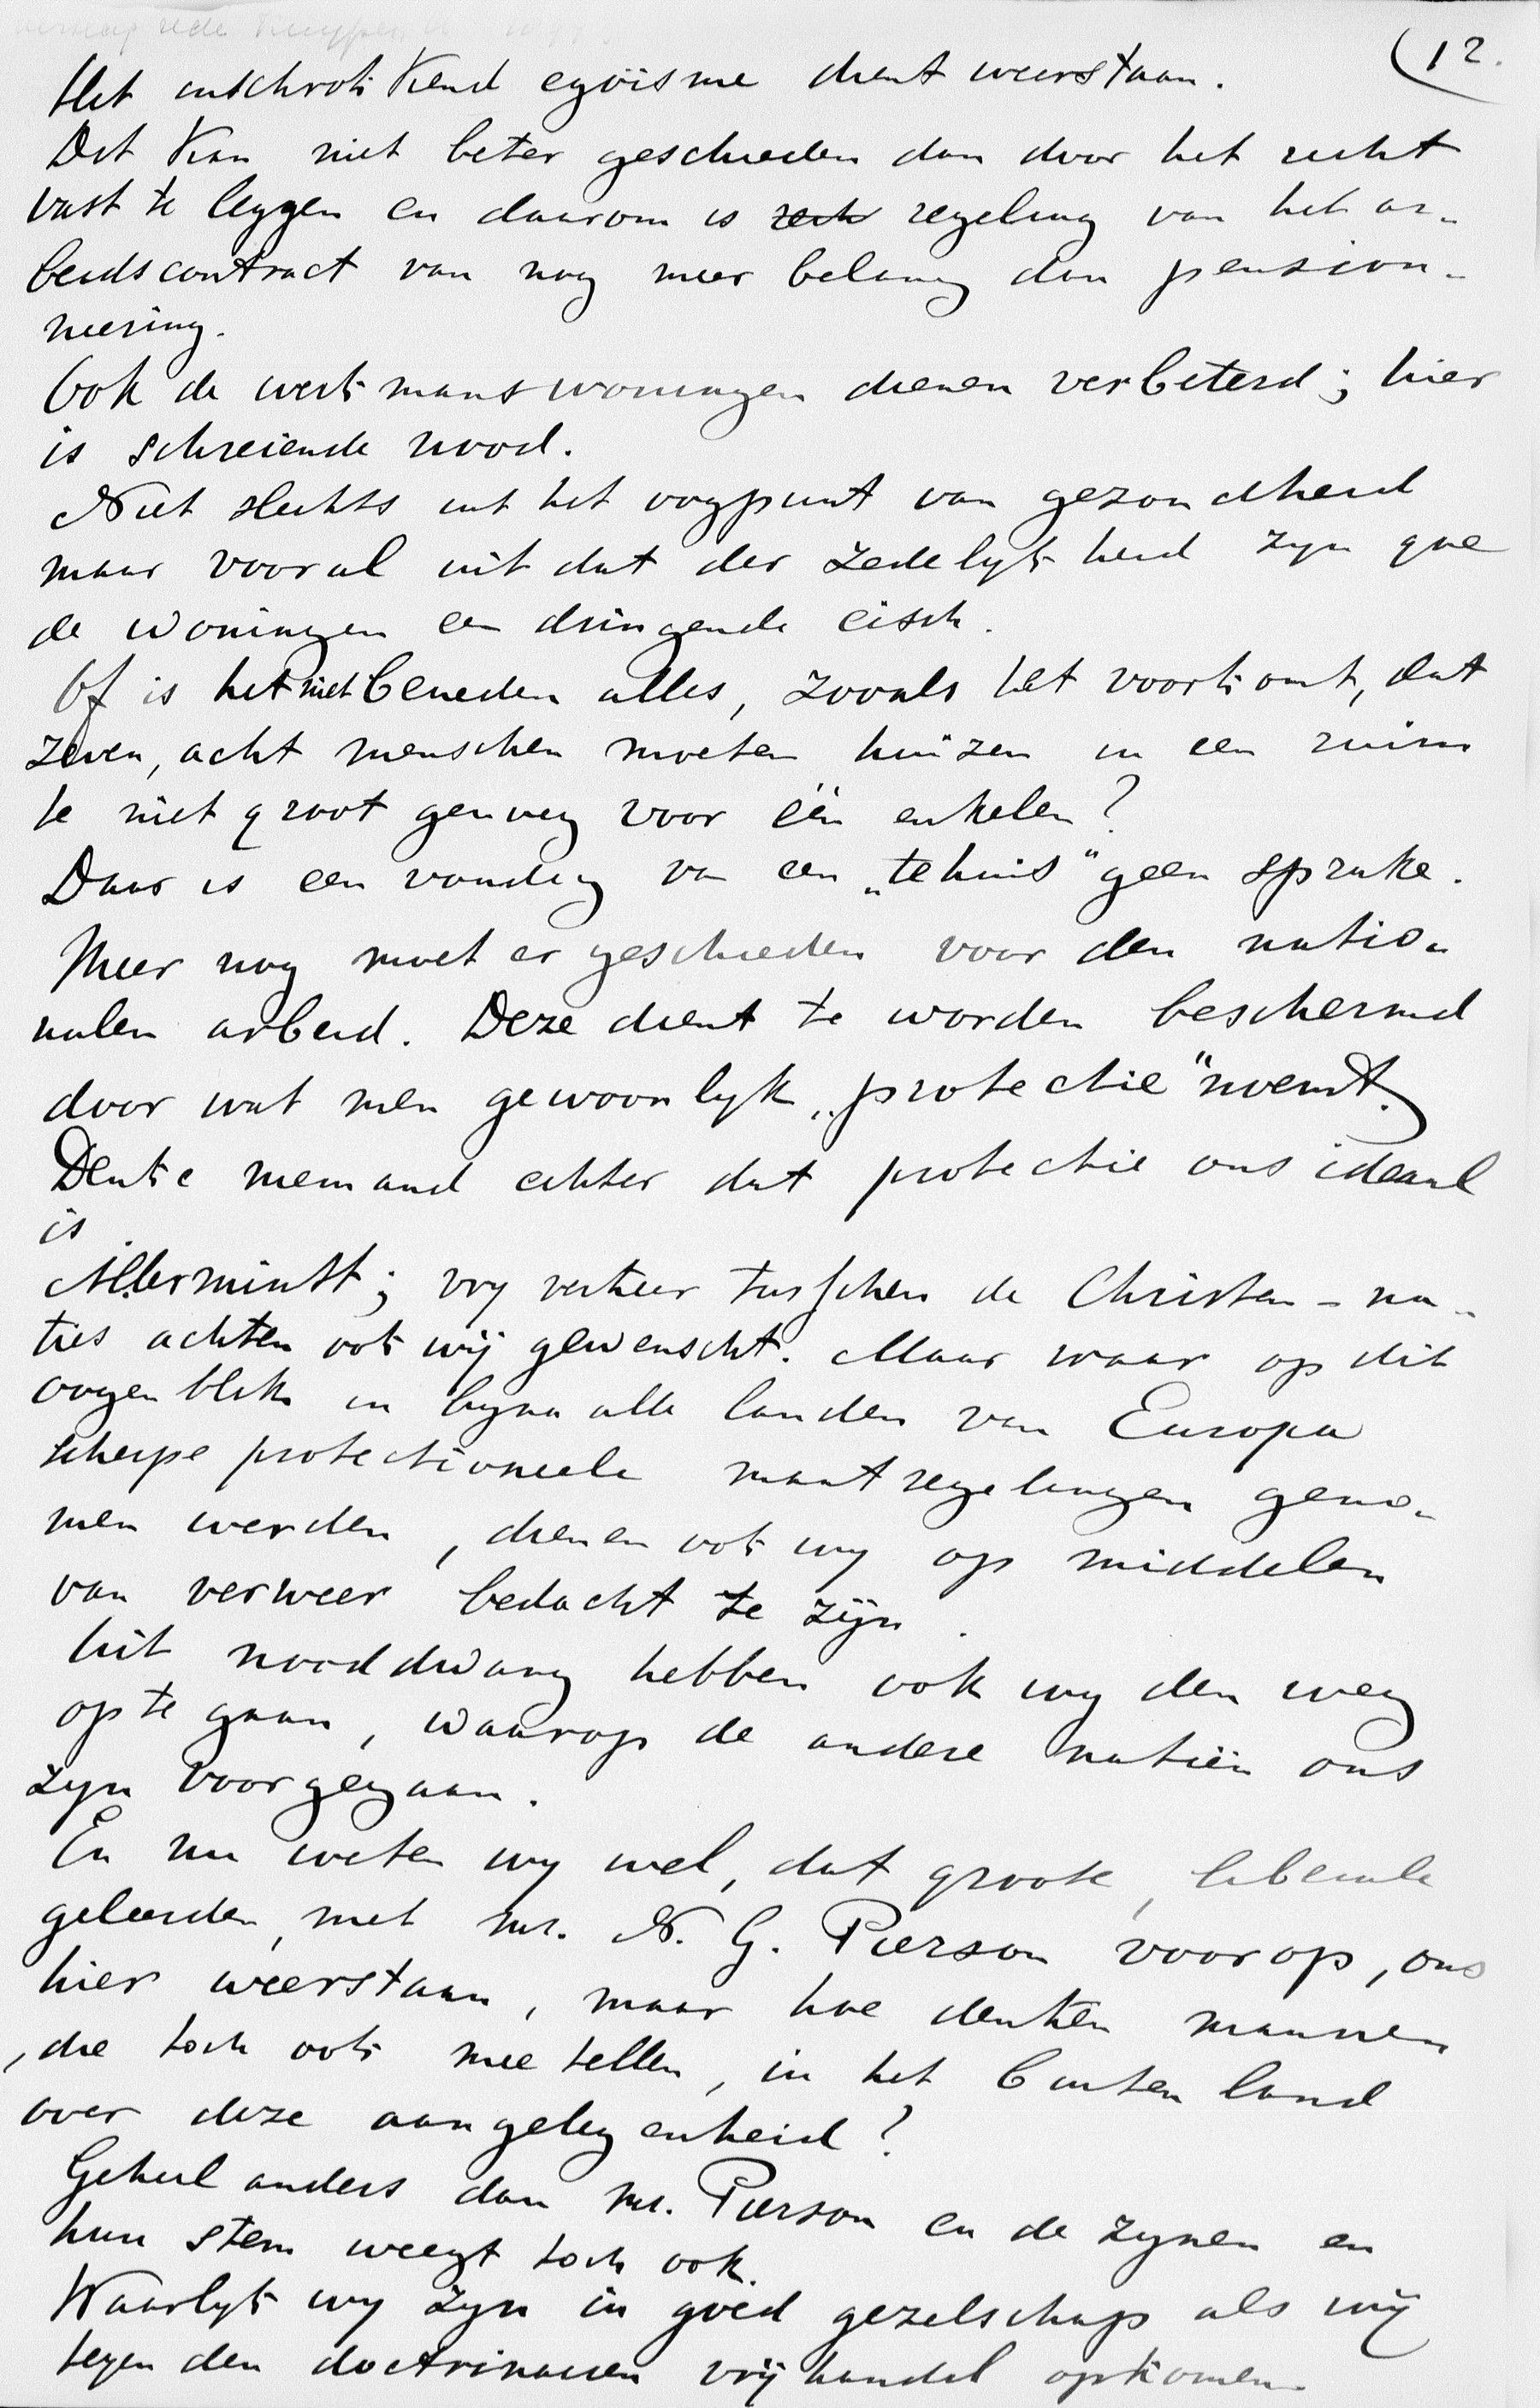 12.
Het inschrokkend egoïsme dient weerstaan.
Dit kan niet beter geschieden dan door het recht
vast te leggen en daarom is regeling van het ar-
beidscontract van nog meer belang dan pension-
neering.
Ook de werkmanswoningen dienen verbeterd; hier
is schreiende nood.
Niet slechts uit het oogpunt van gezondheid
maar vooral uit dat der zedelykheid zyn goe
de woningen een dringende eisch.
Of is het niet beneden alles, zooals het voorkomt, dat
zeven, acht menschen moeten huizen in een ruim
te niet groot genoeg voor één enkelen?
Daar is een van een „tehuis" geen sprake.
Meer nog moet er geschieden voor den natio-
nalen arbeid. Deze dient te worden beschermd
door wat men gewoonlyk „protectie" noemt.
Denke niemand echter dat protectie ons ideaal
is.
Allerminst; vry verkeer tusschen de Christen-na-
ties achten ook wij gewenscht. Maar waar op dit
oogenblik in byna alle landen van Europa
scherpe protectioneele maatregelingen geno-
men werden, dienen ook wy op middelen
van verweer bedacht te zijn.
Uit nooddwang hebben ook wy den weg
op te gaan, waarop de andere natiën ons
zyn voorgegaan.
En nu weten wy wel, dat groote, liberale
geleerden, met mr. N. G. Pierson voorop, ons
hier weerstaan, maar hoe denken mannen
, die toch ook mee tellen, in het buitenland
over deze aangelegenheid?
Geheel anders dan mr. Pierson en de zynen en
hun stem weegt toch ook.
Waarlyk wy zyn in goed gezelschap als wij
tegen den doctrinairen vrijhandel opkomen.